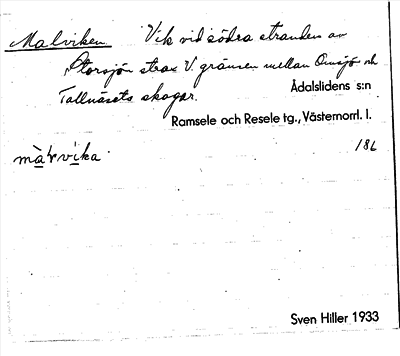 Malviken Vik vid södra stranden av
Storsjön strax V. gränsen mellan Omsjö och
Tallnäsets skogar. Ådalslidens s:n
Ramsele och Resele tg., Västernorrl. l.
186
Sven Hiller 1933